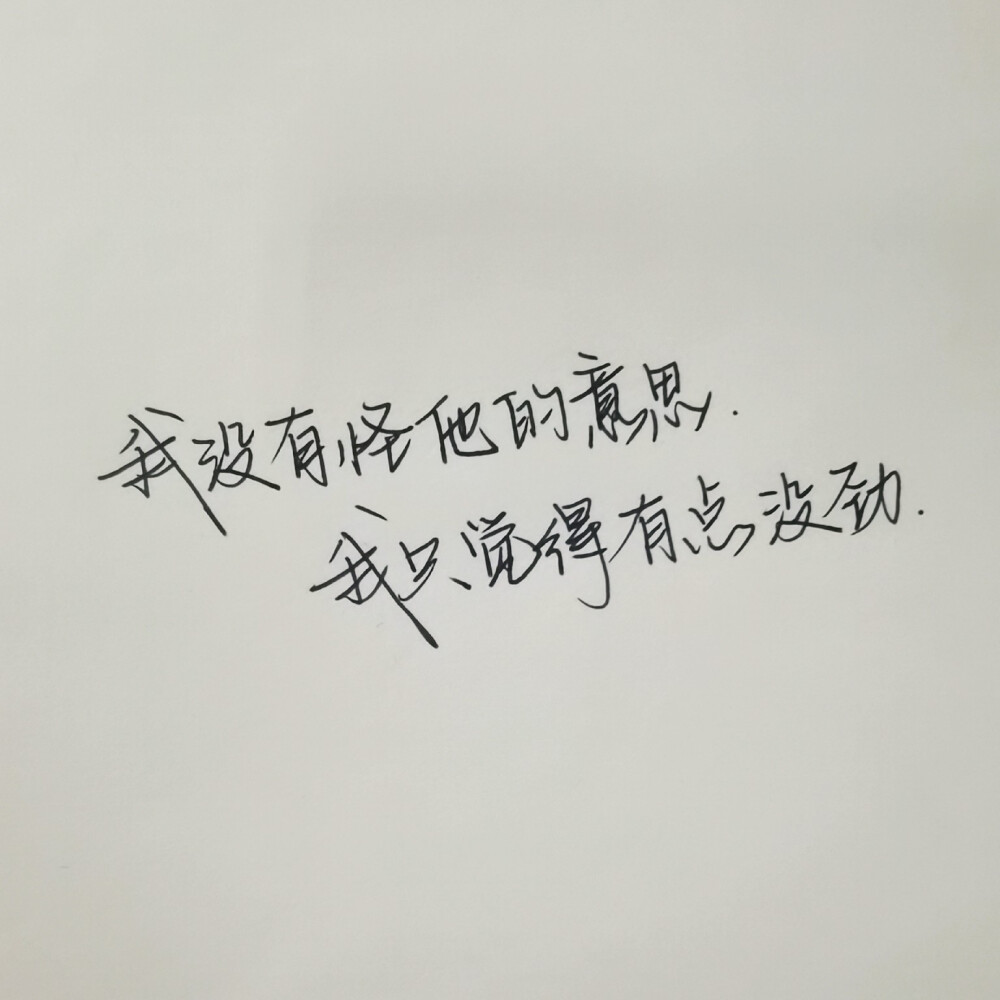 我没有怪他的意思.
我只觉得有点没劲.